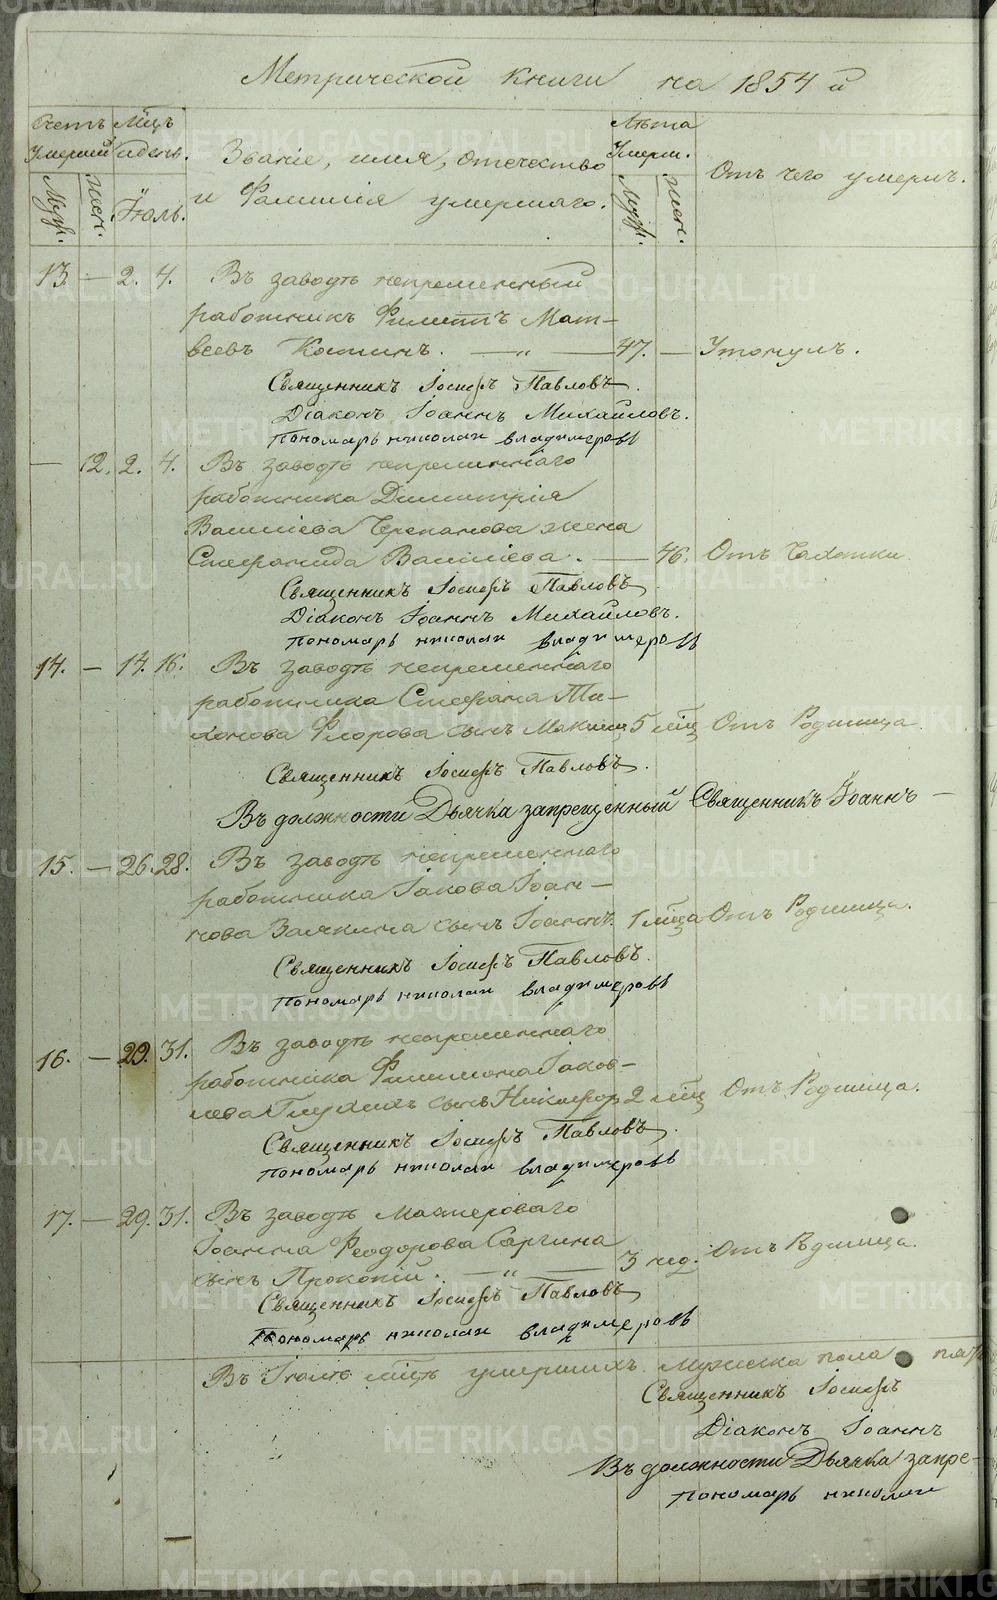 Метрической книги на 1854 й
Счетъ Умерши
Муж.
Жен.
М̃цъ и день.
Іюль.
Званіе, имя, отечество
и Фамилія умершаго.
Лѣта Умерш.
Муж.
Жен.
Отъ чего умеръ.
13 — 2. 4. Въ заводѣ непременный
работникъ Филиппъ Мат-
веевъ Костинъ. — „ — 47. — Утонулъ.
Священникъ Іосифъ Павловъ.
Діаконъ Іоаннъ Михайловъ.
пономарь николаи владимеровъ
— 12. 2. 4. Въ заводѣ непременнаго
работника Димитрія
Василіева Черепанова жена
Стефанида Василіева. — 46. Отъ Чахотки.
Священникъ Іосифъ Павловъ
Діаконъ Іоаннъ Михайловъ.
пономарь николаи владимеровъ
14. — 14. 16. Въ заводѣ непременнаго
работника Стефана Ти-
хонова Флорова сынъ Максим 5 мѣц Отъ Родимца.
Священникъ Іосифъ Павловъ.
Въ должности Дьячка запрещенный Священникъ Іоаннъ —
15. — 26. 28. Въ заводѣ непременнаго
работника Іакова Іоан-
нова Заякина сынъ Іоаннъ. 1 мѣца Отъ Родимца.
Священникъ Іосифъ Павловъ.
пономарь николаи владимеровъ
16. — 29. 31. Въ заводѣ непременнаго
работника Филимона Іаков-
лева Глухихъ сынъ Никифор 2 мѣц Отъ Родимца.
Священникъ Іосифъ Павловъ.
пономарь николаи владимеровъ
17. — 29. 31. Въ заводѣ мастероваго
Іоанна Феодорова Саргина
сынъ Прокопій. — „ — 3 нед. Отъ Родимца.
Священникъ Іосифъ Павловъ
пономарь николаи владимеровъ
Въ Іюлѣ мѣцѣ умершихъ Мужеска пола
Священникъ Іосифъ
Діаконъ Іоаннъ
Въ должности Дьячка запре-
пономарь николаи
METRIKI.GASO-URAL.RU